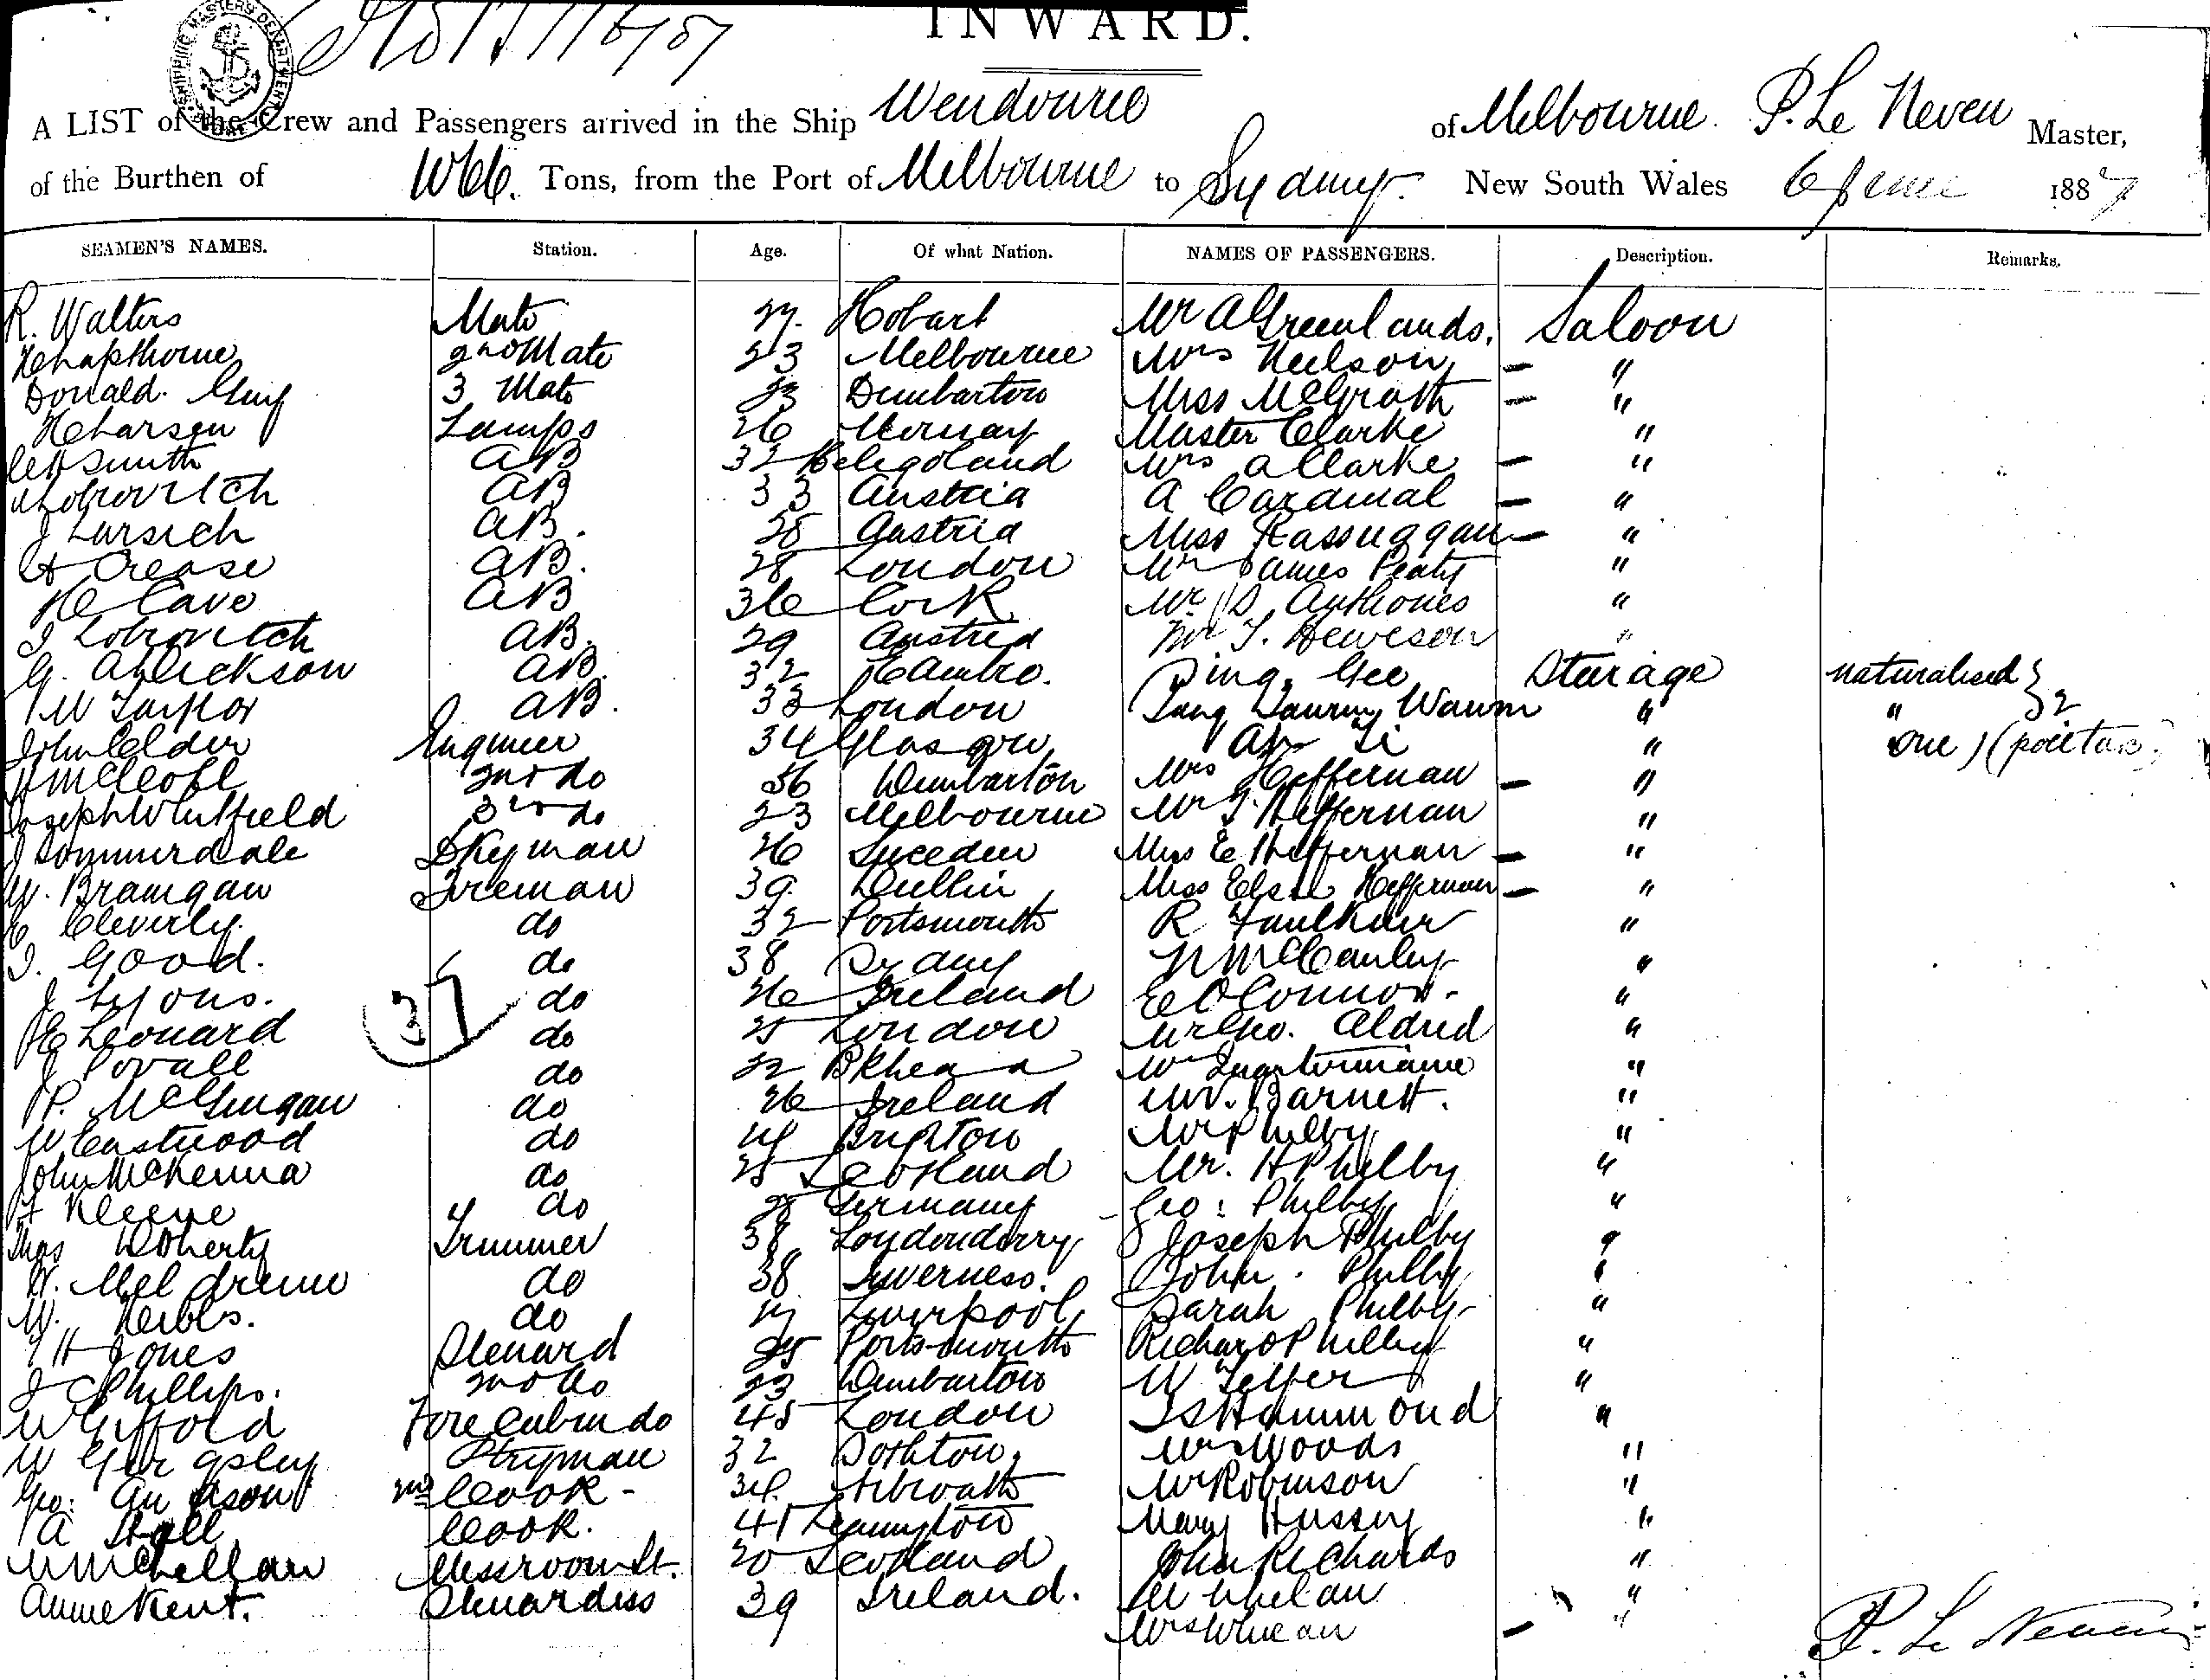 INWARD.
A LIST of the Crew and Passengers arrived in the Ship Wendouree of Melbourne. P. Le Neven Master,
of the Burthen of Tons, from the Port of Melbourne to Sydney. New South Wales 6 June 1887
SEAMEN'S NAMES. Station. Age. Of what Nation. NAMES OF PASSENGERS. Description. Remarks.
R. Walters Mate 27. Hobart Mr A Greenlands. Saloon
2nd Mate 23 Melbourne Mrs Neilson — "
Donald 3 Mate 23 Dumbarton Miss McGrath — "
Lamps 26 Master Clarke "
Smith AB 32 Heligoland Mrs A Clarke — "
AB 33 Austria A Cardinal — "
J Larsich AB. 28 Austria Miss — "
H Crease AB. 28 London Mr James Peaty "
H Cave AB 36 Cork Mr D. Anthones "
J Lobrovitch AB. 29 Austria Mr T. Heweson "
G. AB. 32 Sing Gee Sturage naturalised } 2
W Taylor AB. 33 London "  "
John Calder Engineer 34 Glasgow Ah Ti " one) (poll tax)
2nd do 36 Dumbarton Mrs Heffernan — "
Joseph Whitfield 3rd do 23 Melbourne Mr T. Heffernan "
J Sommerdale Dkeyman 26 Sweden Miss E Heffernan — "
W. Branigan Fireman 39. Dublin Miss Elsie Heffernan — "
E Cleverly. do 32 Portsmouth R Faulkner "
J. Good. do 38 Sydney N McCauley "
J Lyons. 37 do 26 Ireland E O'Connor. "
E Leonard do 25 London Mr Geo. Aldred "
J Povall do 22 BKhead Mr Quartermaine "
P. McGuigan do 26 Ireland Mr. Barnett. "
W Eastwood do 24 Brighton Mr Philby "
John McKenna do 25 Scotland Mr. H Philby "
F Kleeve do 28 Germany Geo: Philby "
Thos Doherty Trimmer 38 Londonderry Joseph Philby "
W. Meldrum do 38 Inverness. John. Philby "
W. Keibls. do Liverpool Sarah Philby "
J H Jones Steward 25 Portsmouth Richard Philby "
J C Phillips. 2nd do 23 Dumbarton W Telfer "
W Gifford Fore Cabin do 45 London J S Hammond "
W Ptryman 32 Mr Woods "
Geo: 2nd Cook - 34. Arbroath Mr Robinson "
A Stall Cook. 41 Leamington Mary Hussey "
McLellan Messroom St. 20 Scotland John Richards "
Annie Kent. Stewardess 39 Ireland. M Whelan "
Mrs Whelan — "
P. Le Neven